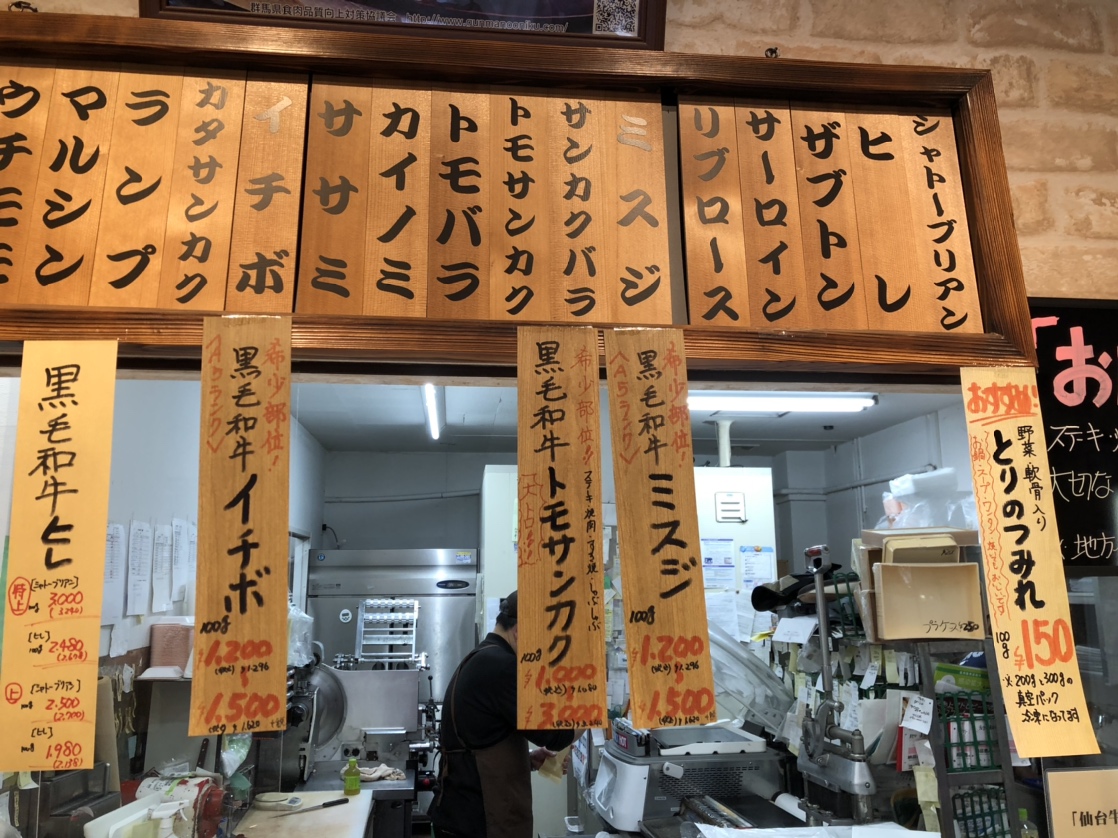 群馬県食肉品質向上対策協議会
シャトーブリアン
ヒレ
ザブトン
サーロイン
リブロース
ミスジ
サンカクバラ
トモサンカク
トモバラ
カイノミ
ササミ
イチボ
カタサンカク
ランプ
マルシン
ウチモモ
おすすめ!!
野菜 軟骨入り
とりのつみれ
100g
¥150
※200g、300gの
真空パック
冷凍になってます
希少部位!
黒毛和牛 ミスジ
〈A5ランク〉
100g
¥1,200
(税込)¥1,296
¥1,500
(税込)¥1,620
希少部位!!
ステーキ・焼肉・すき焼・しゃぶしゃぶ
黒毛和牛トモサンカク
100g
¥1,000
¥3,000
希少部位!
黒毛和牛 イチボ
〈A5ランク〉
100g
¥1,200
(税込)¥1,296
¥1,500
(税込)¥1,620
黒毛和牛ヒレ
特上
[シャトーブリアン]
3,000
[ヒレ]
2,480
上
[シャトーブリアン]
2,500
(2,700)
[ヒレ]
1,980
「お
ステーキ
大切な
地方
「仙台